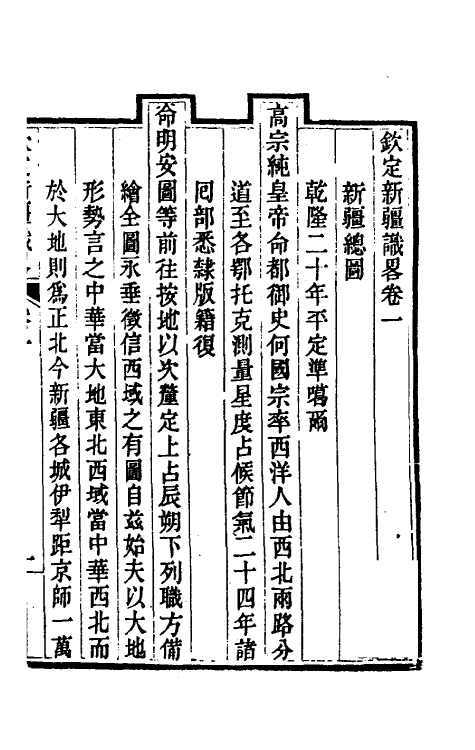 欽定新疆識畧卷一
新疆總圖
乾隆二十年平定準噶爾
高宗純皇帝命都御史何國宗率西洋人由西北兩路分
道至各鄂托克測量星度占候節氣二十四年諸
囘部悉隸版籍復
命明安圖等前往按地以次釐定上占辰朔下列職方備
繪全圖永垂徵信西域之有圖自兹始夫以大地
形勢言之中華當大地東北西域當中華西北而
於大地則爲正北今新疆各城伊犁距京師一萬
新疆
一